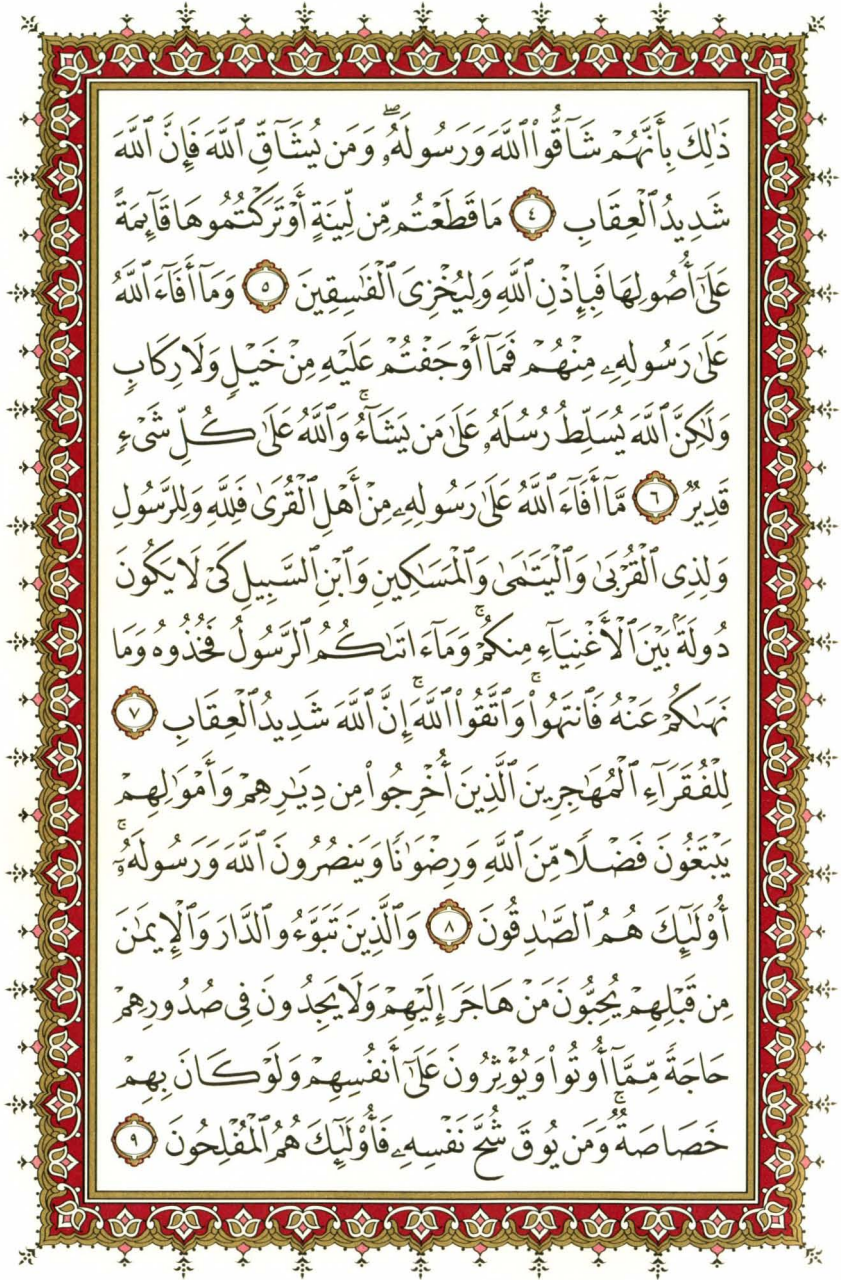 ذَٰلِكَ بِأَنَّهُمْ شَآقُّوا۟ ٱللَّهَ وَرَسُولَهُۥ ۖ وَمَن يُشَآقِّ ٱللَّهَ فَإِنَّ ٱللَّهَ
شَدِيدُ ٱلْعِقَابِ ٤ مَا قَطَعْتُم مِّن لِّينَةٍ أَوْ تَرَكْتُمُوهَا قَآئِمَةً
عَلَىٰٓ أُصُولِهَا فَبِإِذْنِ ٱللَّهِ وَلِيُخْزِىَ ٱلْفَٰسِقِينَ ٥ وَمَآ أَفَآءَ ٱللَّهُ
عَلَىٰ رَسُولِهِۦ مِنْهُمْ فَمَآ أَوْجَفْتُمْ عَلَيْهِ مِنْ خَيْلٍ وَلَا رِكَابٍ
وَلَٰكِنَّ ٱللَّهَ يُسَلِّطُ رُسُلَهُۥ عَلَىٰ مَن يَشَآءُ ۚ وَٱللَّهُ عَلَىٰ كُلِّ شَىْءٍ
قَدِيرٌ ٦ مَّآ أَفَآءَ ٱللَّهُ عَلَىٰ رَسُولِهِۦ مِنْ أَهْلِ ٱلْقُرَىٰ فَلِلَّهِ وَلِلرَّسُولِ
وَلِذِى ٱلْقُرْبَىٰ وَٱلْيَتَٰمَىٰ وَٱلْمَسَٰكِينِ وَٱبْنِ ٱلسَّبِيلِ كَىْ لَا يَكُونَ
دُولَةًۢ بَيْنَ ٱلْأَغْنِيَآءِ مِنكُمْ ۚ وَمَآ ءَاتَىٰكُمُ ٱلرَّسُولُ فَخُذُوهُ وَمَا
نَهَىٰكُمْ عَنْهُ فَٱنتَهُوا۟ ۚ وَٱتَّقُوا۟ ٱللَّهَ ۖ إِنَّ ٱللَّهَ شَدِيدُ ٱلْعِقَابِ ٧
لِلْفُقَرَآءِ ٱلْمُهَٰجِرِينَ ٱلَّذِينَ أُخْرِجُوا۟ مِن دِيَٰرِهِمْ وَأَمْوَٰلِهِمْ
يَبْتَغُونَ فَضْلًا مِّنَ ٱللَّهِ وَرِضْوَٰنًا وَيَنصُرُونَ ٱللَّهَ وَرَسُولَهُۥٓ ۚ
أُو۟لَٰٓئِكَ هُمُ ٱلصَّٰدِقُونَ ٨ وَٱلَّذِينَ تَبَوَّءُو ٱلدَّارَ وَٱلْإِيمَٰنَ
مِن قَبْلِهِمْ يُحِبُّونَ مَنْ هَاجَرَ إِلَيْهِمْ وَلَا يَجِدُونَ فِى صُدُورِهِمْ
حَاجَةً مِّمَّآ أُوتُوا۟ وَيُؤْثِرُونَ عَلَىٰٓ أَنفُسِهِمْ وَلَوْ كَانَ بِهِمْ
خَصَاصَةٌ ۚ وَمَن يُوقَ شُحَّ نَفْسِهِۦ فَأُو۟لَٰٓئِكَ هُمُ ٱلْمُفْلِحُونَ ٩